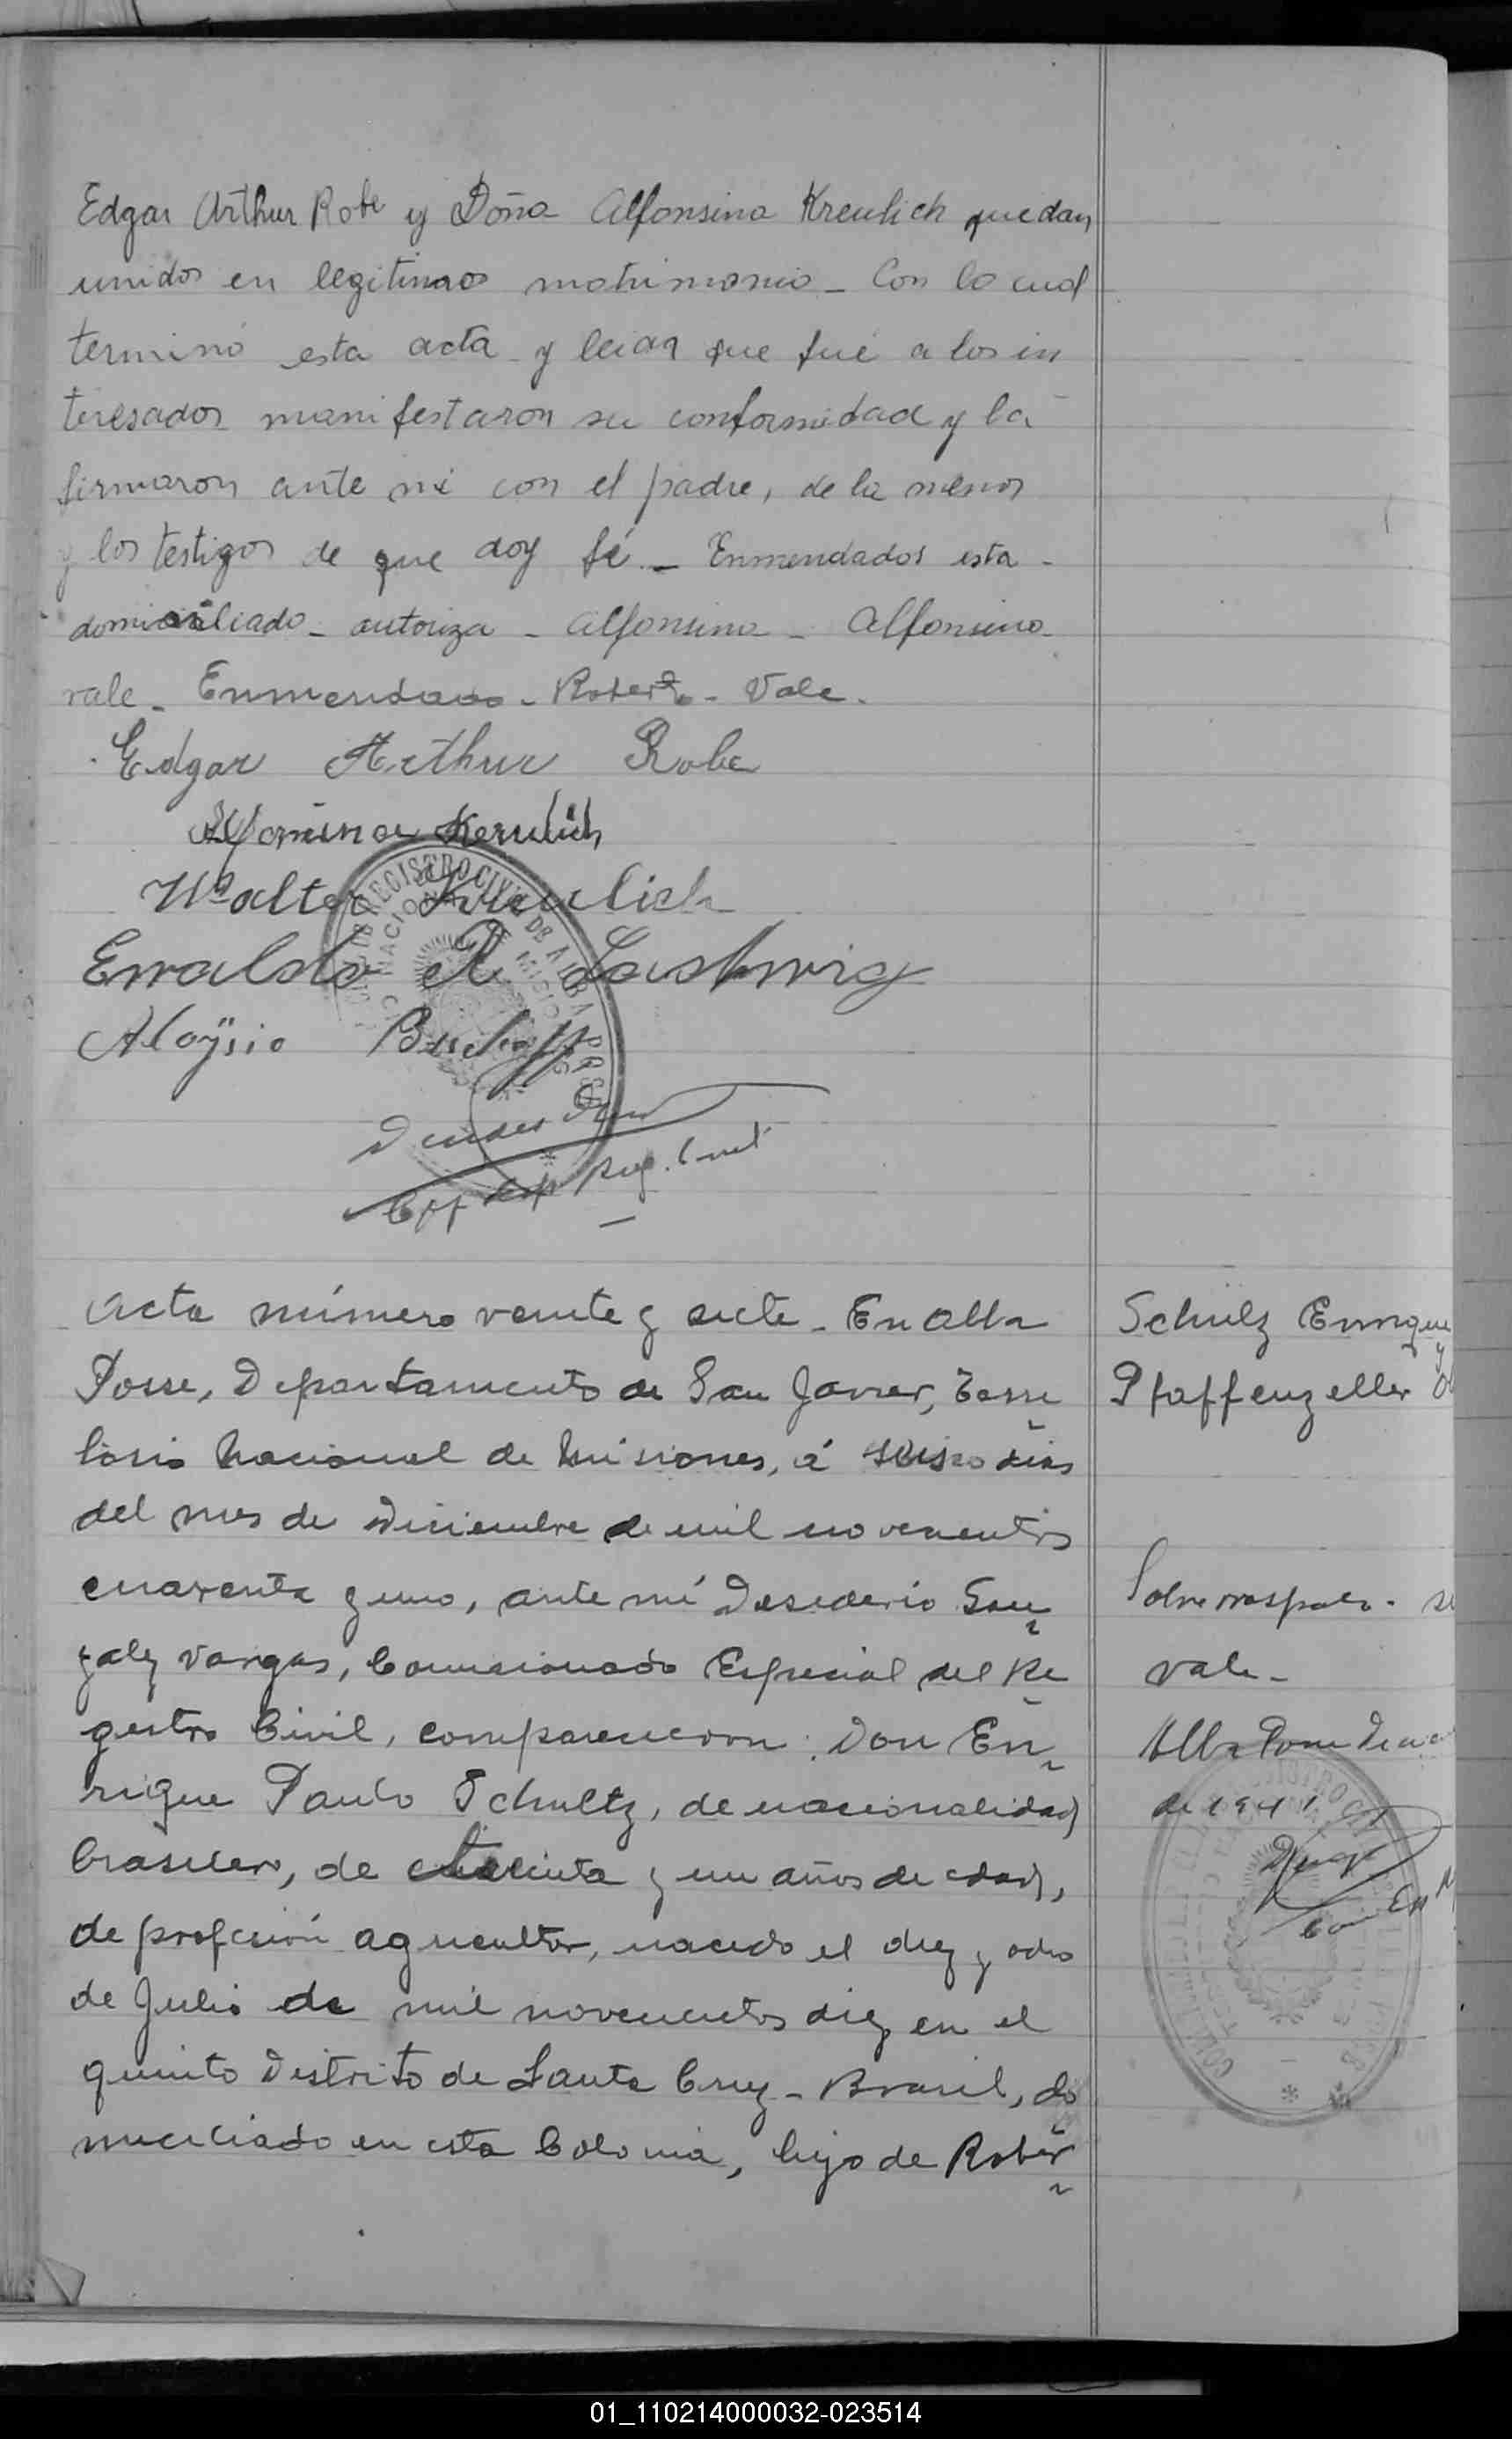 Edgar Arthur Robe y Doña Alfonsina Kreulich quedan
unidos en legitimo matrimonio - Con lo cual
terminó esta acta y leida que fué a los in
teresados manifestaron su conformidad y la
firmaron ante mi con el padre, de la menor
y los testigos de que doy fé - Enmendados esta -
domiciliado - autoriza - Alfonsina - Alfonsina
vale - Enmendado - Roberto - Vale.
Edgar Arthur Robe
Alfonsina Kerulich
Walter Kreulich
Erwaldo R Laschwig
Aloÿsio
Reg. Civil
Acta número veinte y siete - En Alba
Posse, Departamento de San Javier, Terri
torio Nacional de Misiones, á seis dias
del mes de Diciembre de mil novecientos
cuarenta y uno, ante mí Desiderio Gon
zalez Vargas, Comisionado Especial del Re
gistro Civil, comparecieron: Don En
rique Paulo Schultz, de nacionalidad
brasilero, de treinta y un años de edad,
de profesión agricultor, nacido el diez y ocho
de Julio de mil novecientos diez en el
quinto Distrito de Santa Cruz - Brasil, do
miciliado en esta Colonia, hijo de Rober
Schulz Enrique
y
Pfaffenzeller
Sobrerraspado - 
vale -
Alba Posse
de 1941
01_110214000032-023514